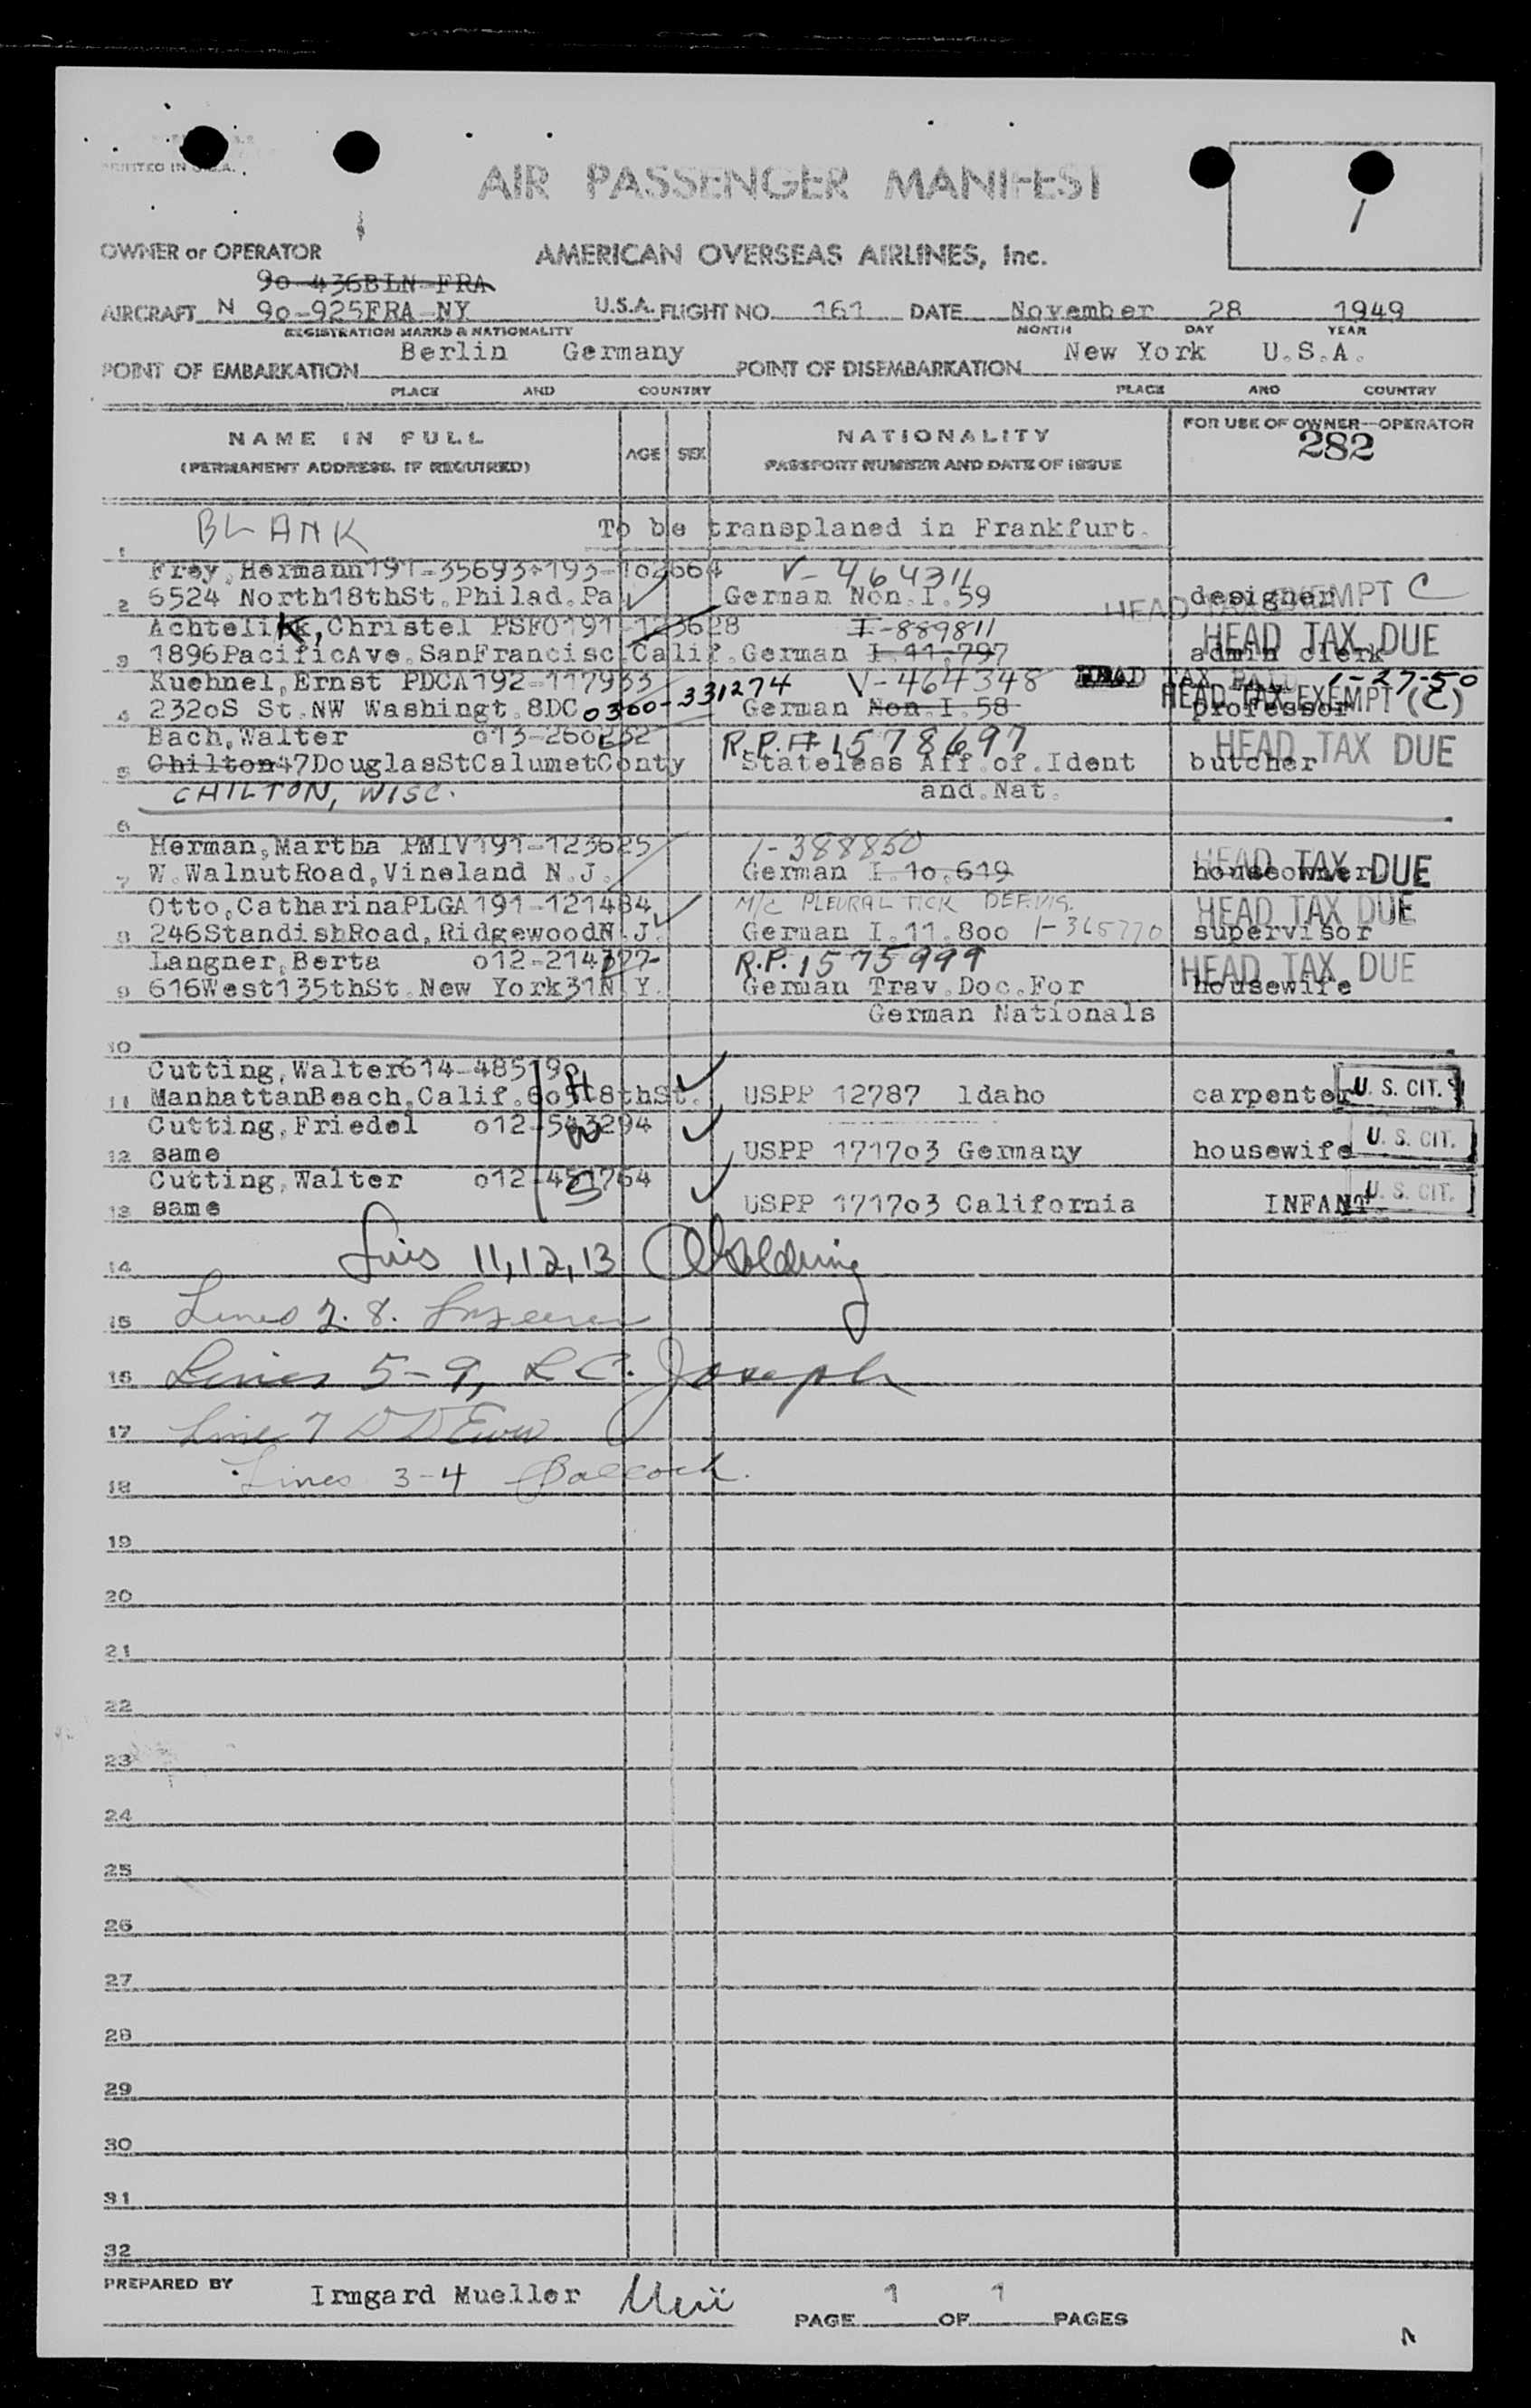 PRINTED IN U.S.A.
AIR PASSENGER MANIFEST
1
OWNER or OPERATOR AMERICAN OVERSEAS AIRLINES, Inc.
9o-436BLN-FRA
AIRCRAFT N 9o-925FRA-NY U.S.A. FLIGHT NO. 161 DATE November 28 1949
REGISTRATION MARKS & NATIONALITY MONTH DAY YEAR
POINT OF EMBARKATION Berlin Germany POINT OF DISEMBARKATION New York U.S.A.
PLACE AND COUNTRY PLACE AND COUNTRY
NAME IN FULL AGE SEX NATIONALITY FOR USE OF OWNER—OPERATOR
(PERMANENT ADDRESS, IF REQUIRED) PASSPORT NUMBER AND DATE OF ISSUE 282
1 BLANK To be transplaned in Frankfurt.
Frey,Hermann191-35693+193-102664 V-464311
2 6524 North18thSt.Philad.Pa German Non.I.59 designer HEAD TAX EXEMPT C
Achtelik,Christel PSFO191-123628 I-889811 HEAD TAX DUE
3 1896PacificAve.SanFrancisc.Calif.German I.11,797 admin clerk
Kuehnel,Ernst PDCA192-117933 V-464348 HEAD TAX PAID 1-27-50
4 232oS St.NW Washingt.8DC 0300-331274 German Non.I.58 professor HEAD TAX EXEMPT (C)
Bach,Walter o13-260232 R.P.# 1578697 HEAD TAX DUE
5 Chilton47DouglasStCalumetConty Stateless Aff.of.Ident butcher
CHILTON, WISC. and.Nat.
6
Herman,Martha PMIV191-123625 1-388850
7 W.WalnutRoad,Vineland N.J. German I.10,619 houseowner HEAD TAX DUE
Otto,CatharinaPLGA191-121484 M/C PLEURAL TICK DEF.VIS. HEAD TAX DUE
8 246StandishRoad,RidgewoodN.J. German I.11.8oo 1-365770 supervisor
Langner,Berta o12-214377 R.P. 1575999 HEAD TAX DUE
9 616West135thSt.New York31N.Y. German Trav.Doc.For housewife
German Nationals
10
Cutting,Walter614-485198 H
11 ManhattanBeach,Calif.6o518thSt. USPP 12787 Idaho carpenter U. S. CIT.
Cutting,Friedel o12-543294 W
12 same USPP 1717o3 Germany housewife U. S. CIT.
Cutting,Walter o12-451764 S
13 same USPP 1717o3 California INFANT U. S. CIT.
14 11,12,13
15 Lines 2. 8.
16 Lines 5-9, L C. Joseph
17 Line 7
18 Lines 3-4
19
20
21
22
23
24
25
26
27
28
29
30
31
32
PREPARED BY Irmgard Mueller
PAGE 1 OF 1 PAGES